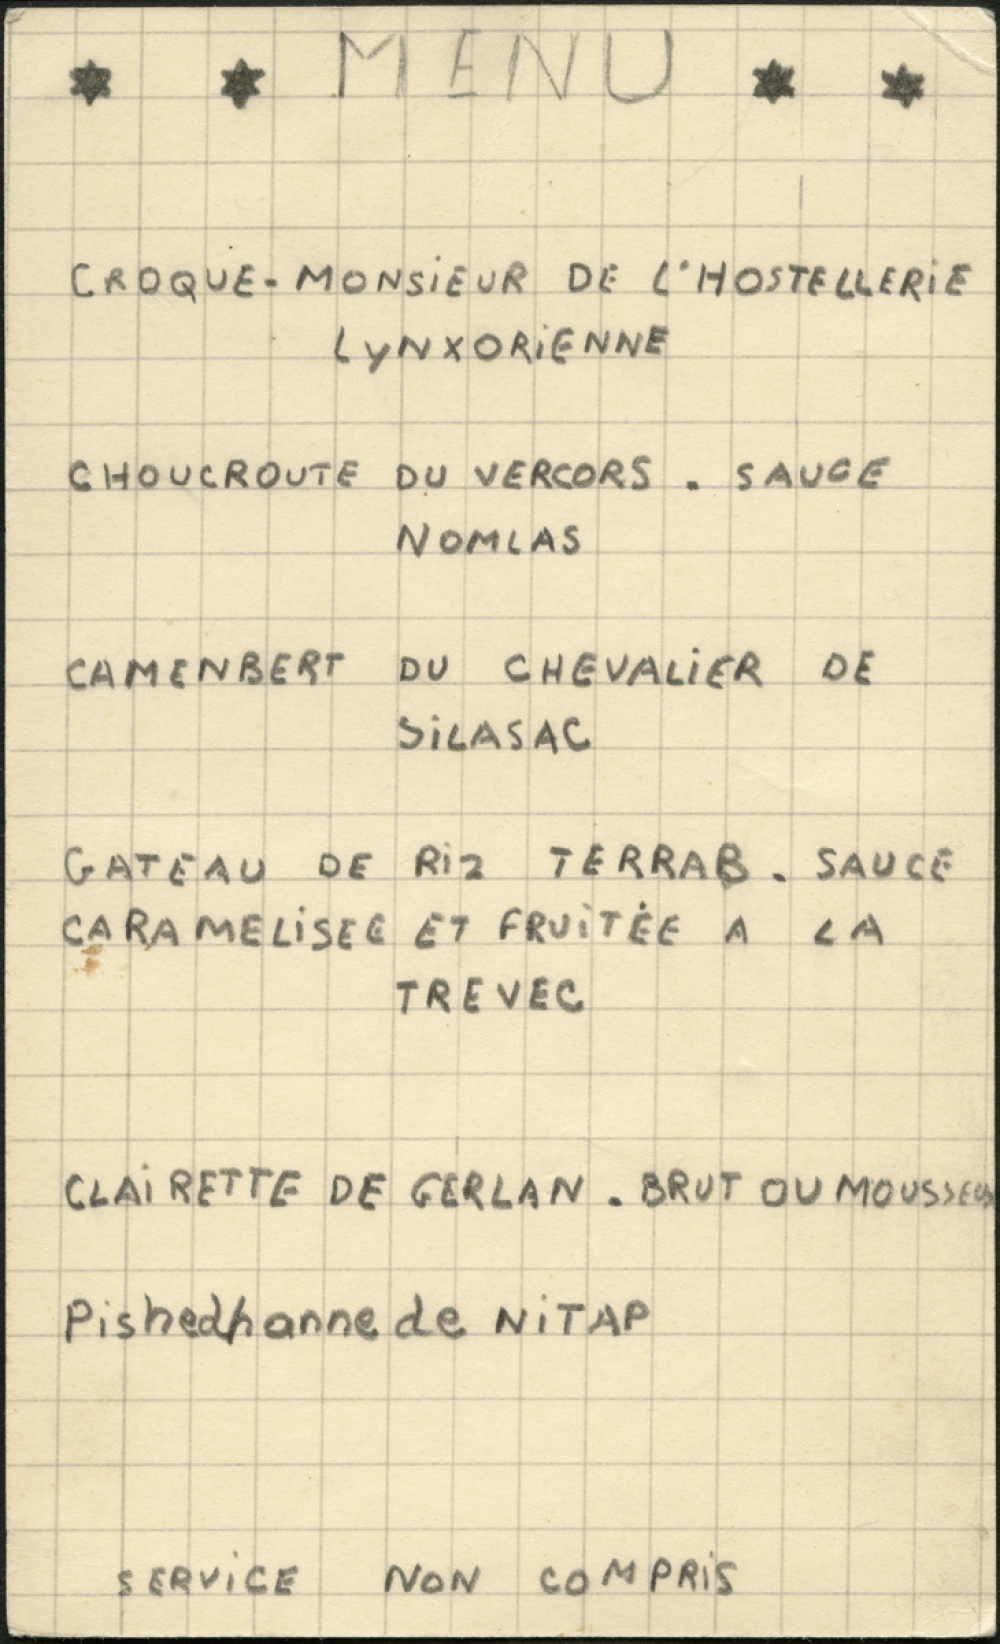 MENU
CROQUE-MONSiEUR DE L'HOSTELLERiE
LyNXORiENNE
CHOUCROUTE DU VERCORS. SAUCE
NOMLAS
CAMENBERT DU CHEVALiER DE
SiLASAC
GATEAU DE Riz TERRAB. SAUCE
CARAMELiSEE ET FRUiTÉE A LA
TREVEC
CLAiRETTE DE GERLAN. BRUT OU MOUSSEUX
Pishedhanne de NiTAP
SERViCE NON COMPRiS